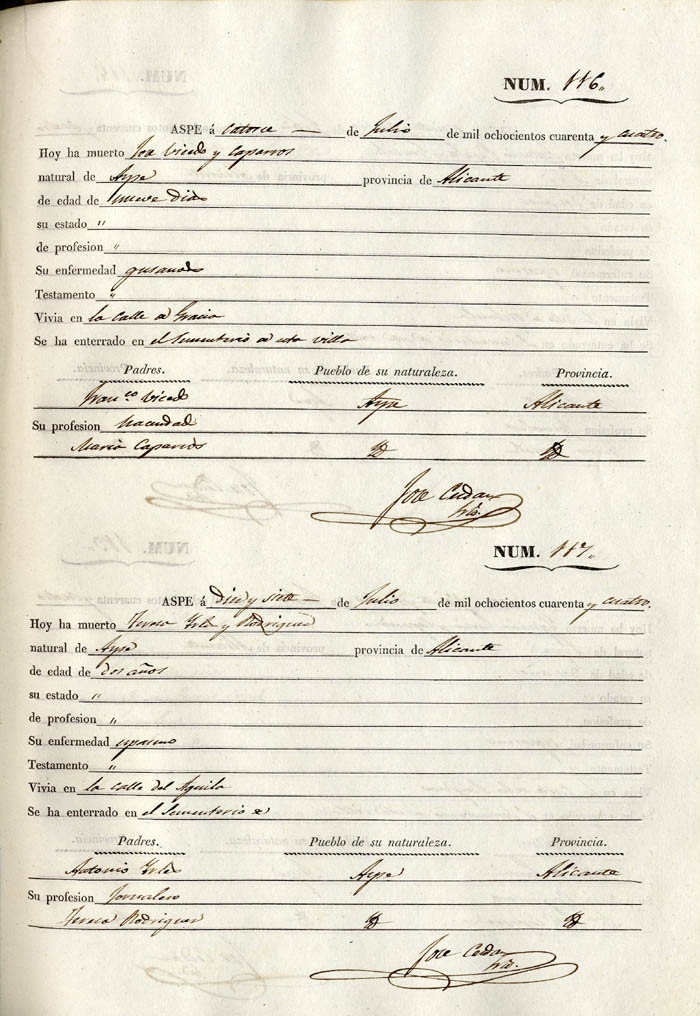 NUM. 116.
ASPE á catorce de Julio de mil ochocientos cuarenta y cuatro.
Hoy ha muerto Vicedo y Caparros
natural de Aspe provincia de Alicante
de edad de nueve dias
su estado "
de profesion "
Su enfermedad gusanos
Testamento "
Vivia en la calle de Gracia
Se ha enterrado en el Sementerio de esta villa
Padres. Pueblo de su naturaleza. Provincia.
Franco Vicedo Aspe Alicante
Su profesion Hacendad
Maria Caparros D D
Jose
NUM. 117.
ASPE á diez y siete de Julio de mil ochocientos cuarenta y cuatro.
Hoy ha muerto Teresa y Rodriguez
natural de Aspe provincia de Alicante
de edad de dos años
su estado "
de profesion "
Su enfermedad espasmo
Testamento "
Vivia en la calle del Aguila
Se ha enterrado en el Sementerio &
Padres. Pueblo de su naturaleza. Provincia.
Antonio Aspe Alicante
Su profesion Jornalero
Teresa Rodriguez D D
Jose